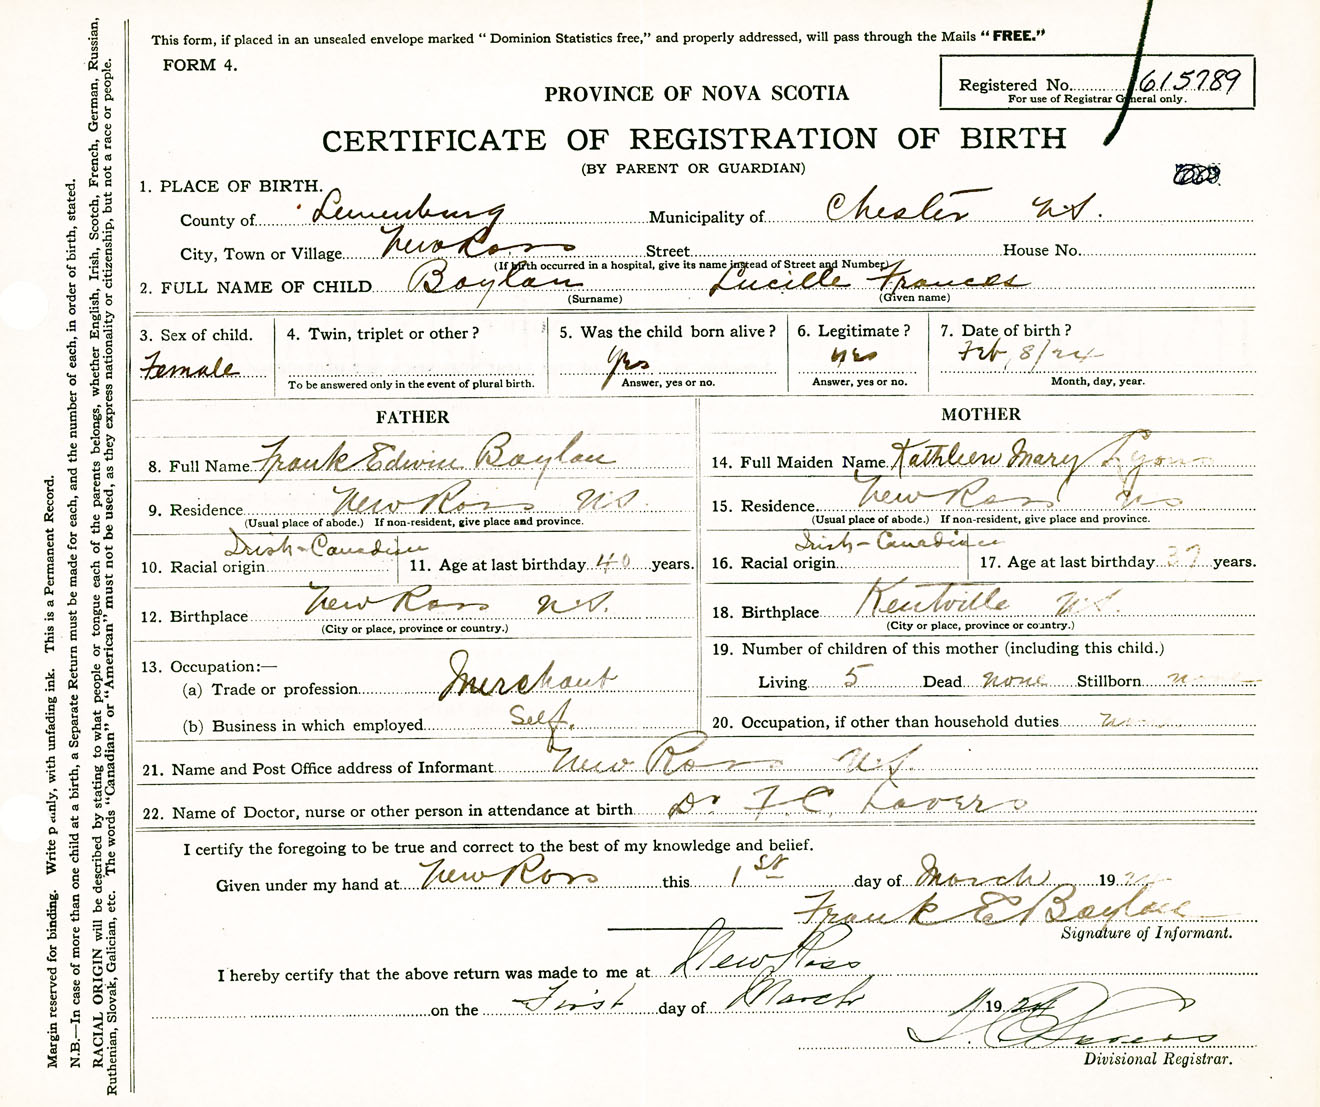 This form, if placed in an unsealed envelope marked " Dominion Statistics free," and properly addressed, will pass through the Mails " FREE."
FORM 4.
Registered No. 615789
For use of Registrar General only.
PROVINCE OF NOVA SCOTIA
CERTIFICATE OF REGISTRATION OF BIRTH
(BY PARENT OR GUARDIAN)
1. PLACE OF BIRTH.
County of Lunenburg Municipality of Chester N.S.
City, Town or Village New Ross Street House No.
(If birth occurred in a hospital, give its name instead of Street and Number)
2. FULL NAME OF CHILD Boylan Lucille Frances
(Surname) (Given name)
3. Sex of child. 4. Twin, triplet or other ? 5. Was the child born alive ? 6. Legitimate ? 7. Date of birth ?
Female yes yes Feb, 8/24
To be answered only in the event of plural birth. Answer, yes or no. Answer, yes or no. Month, day, year.
FATHER
8. Full Name Frank Edwin Boylan
9. Residence New Ross N.S.
(Usual place of abode.) If non-resident, give place and province.
Irish-Canadian
10. Racial origin 11. Age at last birthday 40 years.
12. Birthplace New Ross N.S.
(City or place, province or country.)
13. Occupation:—
(a) Trade or profession Merchant
(b) Business in which employed Self.
MOTHER
14. Full Maiden Name Kathleen Mary Lyons
15. Residence New Ross NS
(Usual place of abode.) If non-resident, give place and province.
Irish-Canadian
16. Racial origin 17. Age at last birthday 37 years.
18. Birthplace Kentville N.S.
(City or place, province or country.)
19. Number of children of this mother (including this child.)
Living 5 Dead none Stillborn none
20. Occupation, if other than household duties
21. Name and Post Office address of Informant New Ross N.S.
22. Name of Doctor, nurse or other person in attendance at birth Dr F. C. Lavers
I certify the foregoing to be true and correct to the best of my knowledge and belief.
Given under my hand at New Ross this 1st day of March 1924
Frank E Boylan
Signature of Informant.
I hereby certify that the above return was made to me at New Ross
on the First day of March 1924
Divisional Registrar.
Margin reserved for binding. Write plainly, with unfading ink. This is a Permanent Record.
N.B.—In case of more than one child at a birth, a Separate Return must be made for each, and the number of each, in order of birth, stated.
RACIAL ORIGIN will be described by stating to what people or tongue each of the parents belongs, whether English, Irish, Scotch, French, German, Russian,
Ruthenian, Slovak, Galician, etc. The words "Canadian" or "American" must not be used, as they express nationality or citizenship, but not a race or people.